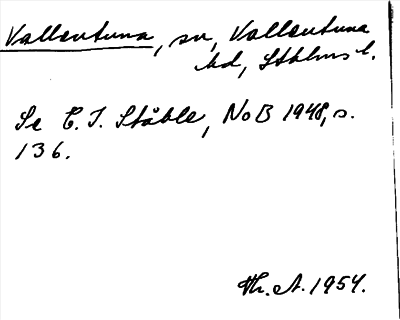 Vallentuna, sn, Vallentuna
hd, Sthlms l.
Se C. I. Ståhle, NoB 1948, s.
136.
Th. A. 1954.